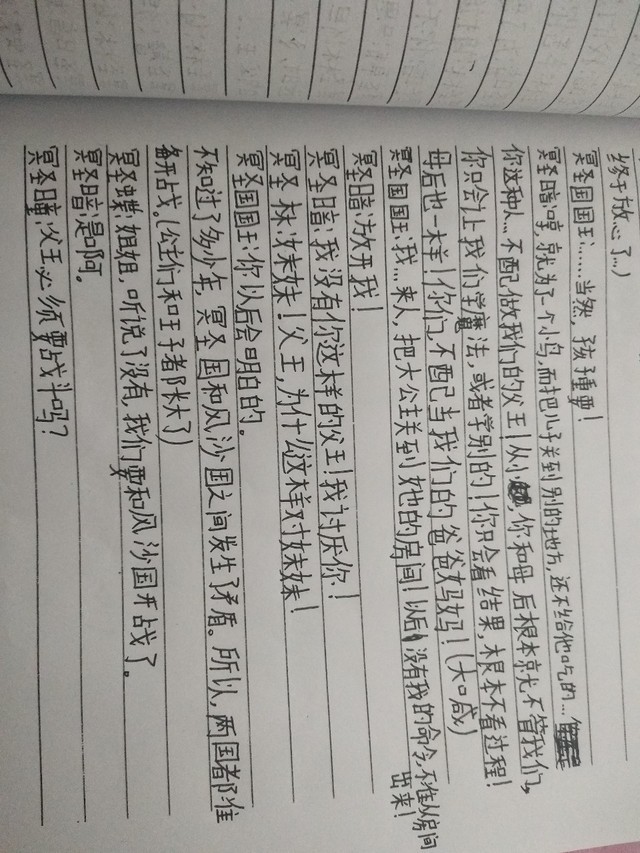 终于放心了…)
冥圣国国王:……当然,孩子重要!
冥圣暗:哼,就为了一个小鸟,而把儿子关到别的地方,还不给他吃的…
你这种人…不配做我们的父王!从小,你和母后根本就不管我们,
你只会让我们学魔法,或者学别的!你只会看结果,根本不看过程!
母后也一样!你们,不配当我们的爸爸妈妈!(大口喊)
冥圣国国王:我…来人,把大公主关到她的房间!以后,没有我的命令,不准从房间
出来!
冥圣暗:放开我!
冥圣暗:我没有你这样的父王!我讨厌你!
冥圣林:妹妹!父王,为什么这样对妹妹!
冥圣国国王:你以后会明白的。
不知过了多少年,冥圣国和风沙国之间发生了矛盾。所以,两国都准
备开战。(公主们和王子都长大了)
冥圣蝶:姐姐,听说了没有,我们要和风沙国开战了。
冥圣暗:是啊。
冥圣瞳:父王必须要战斗吗?